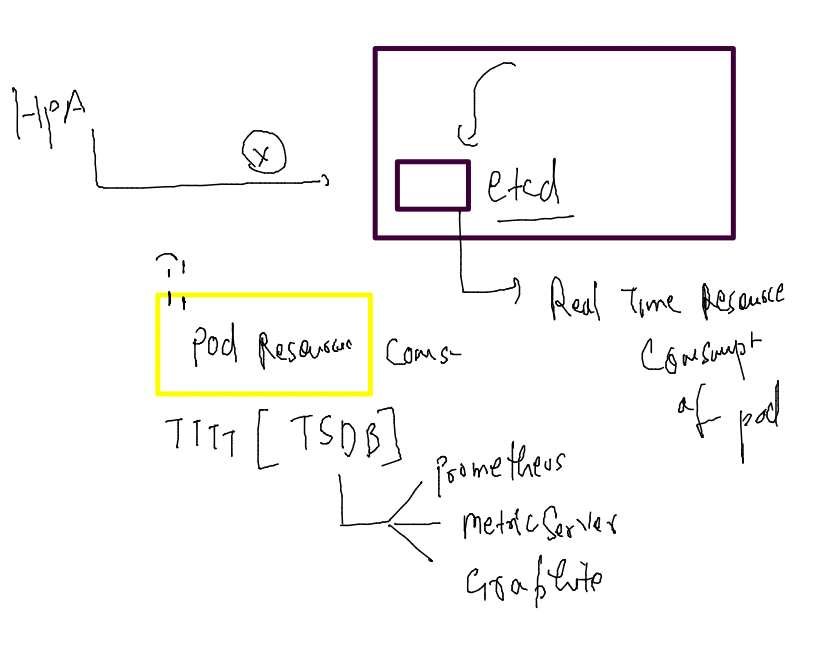 HPA
x
etcd
Real Time Resource
Consumpt
of pod
Pod Resources Cons
TTTT [TSDB]
Prometheus
MetricServer
Graphite